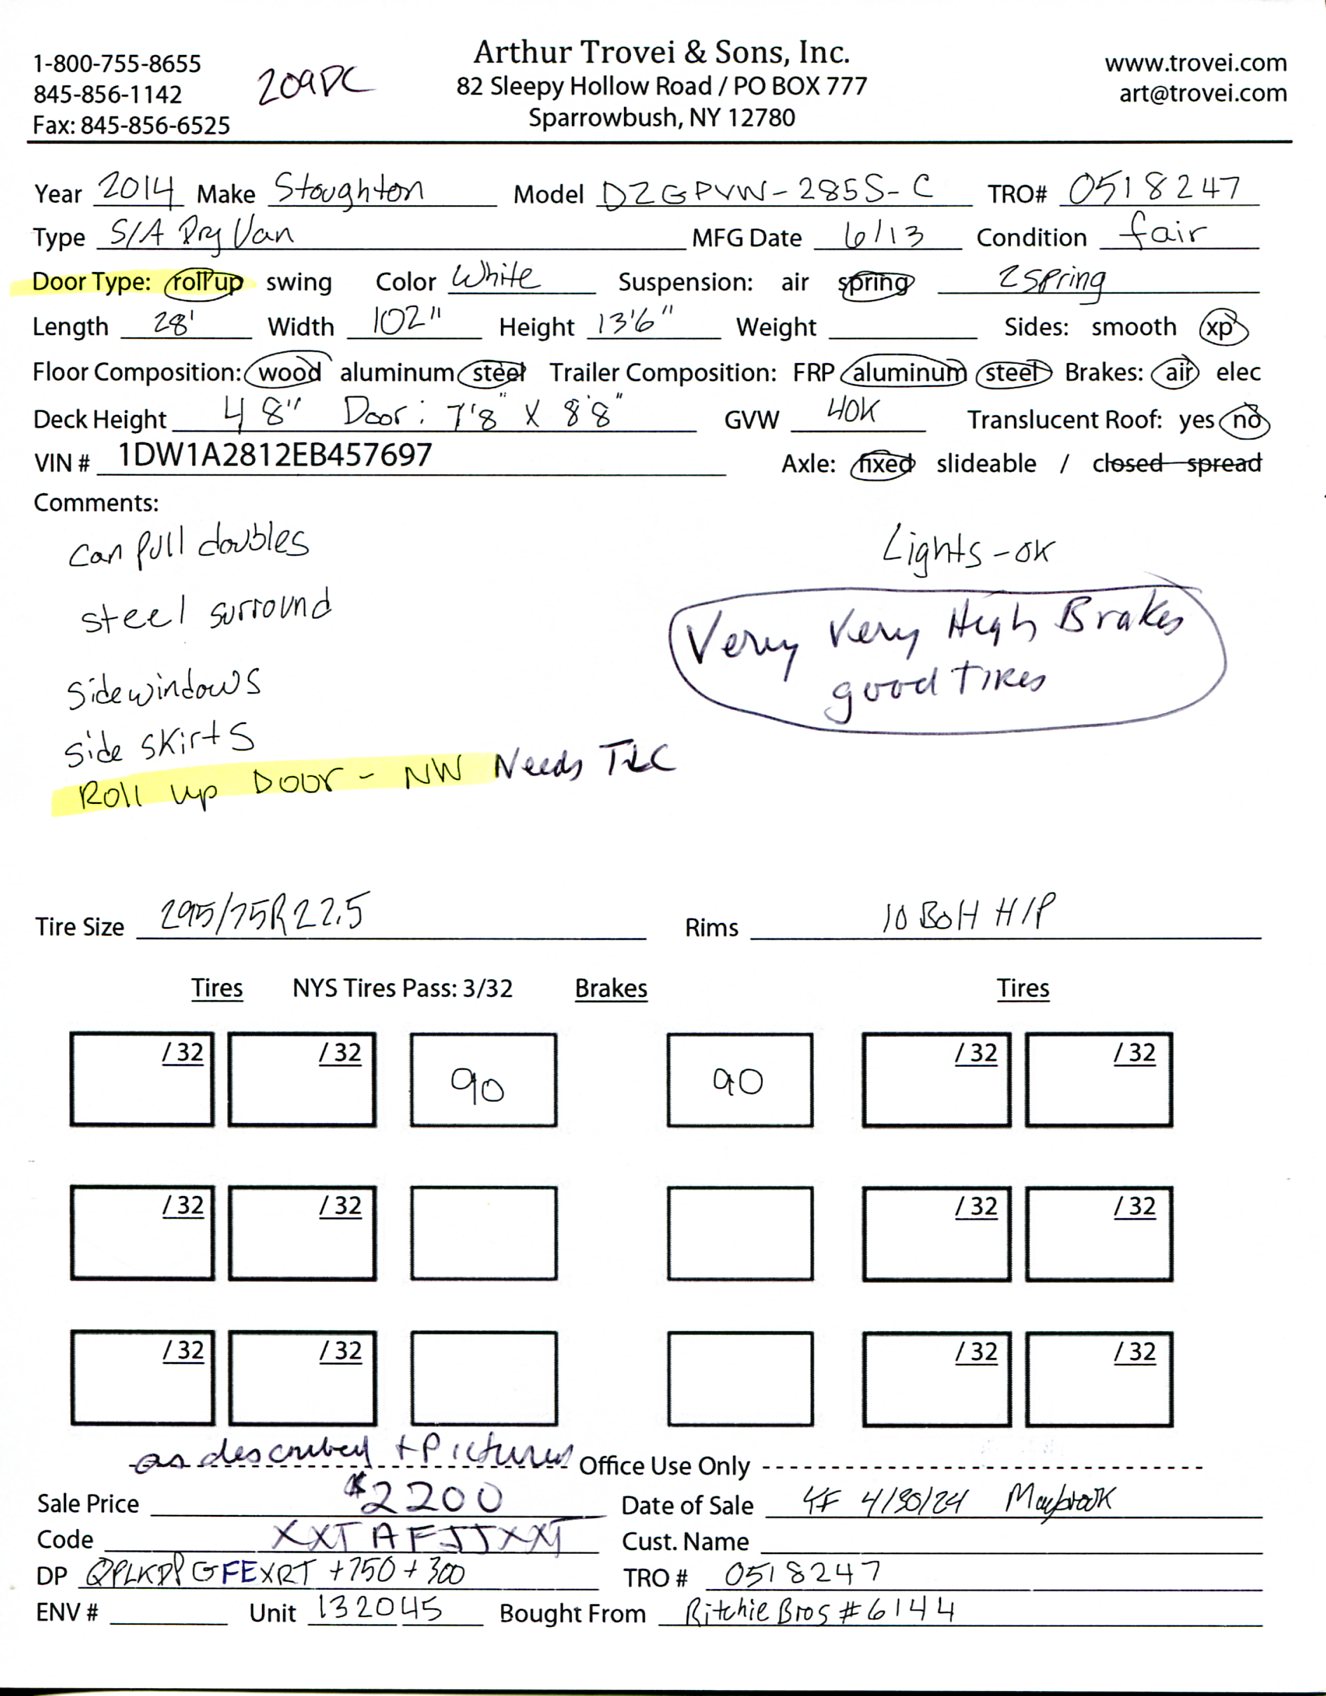 1-800-755-8655
845-856-1142
Fax: 845-856-6525
209DC
Arthur Trovei & Sons, Inc.
82 Sleepy Hollow Road / PO BOX 777
Sparrowbush, NY 12780
www.trovei.com
art@trovei.com
Year 2014 Make Stoughton Model DZGPVW-285S-C TRO# 0518247
Type S/A Dry Van MFG Date 6/13 Condition fair
Door Type: roll up swing Color White Suspension: air spring 2 spring
Length 28' Width 102" Height 13'6" Weight Sides: smooth xp
Floor Composition: wood aluminum steel Trailer Composition: FRP aluminum steel Brakes: air elec
Deck Height 48" Door: 7'8" X 8'8" GVW 40K Translucent Roof: yes no
VIN # 1DW1A2812EB457697 Axle: fixed slideable / closed spread
Comments:
can pull doubles
Lights-ok
steel surround
Very Very High Brakes
good Tires
side windows
side skirts
Roll up Door - NW Needs TLC
Tire Size 295/75R22.5 Rims 10 BoH H/P
Tires NYS Tires Pass: 3/32 Brakes Tires
/32 /32 90 90 /32 /32
/32 /32 /32 /32
/32 /32 /32 /32
as described + Pictures Office Use Only
Sale Price $2200 Date of Sale 4/30/24 Maybrook
Code XXTAFJJXXT Cust. Name
DP QPLKDPGFEXRT +750+300 TRO # 0518247
ENV # Unit 132045 Bought From Ritchie Bros #6144